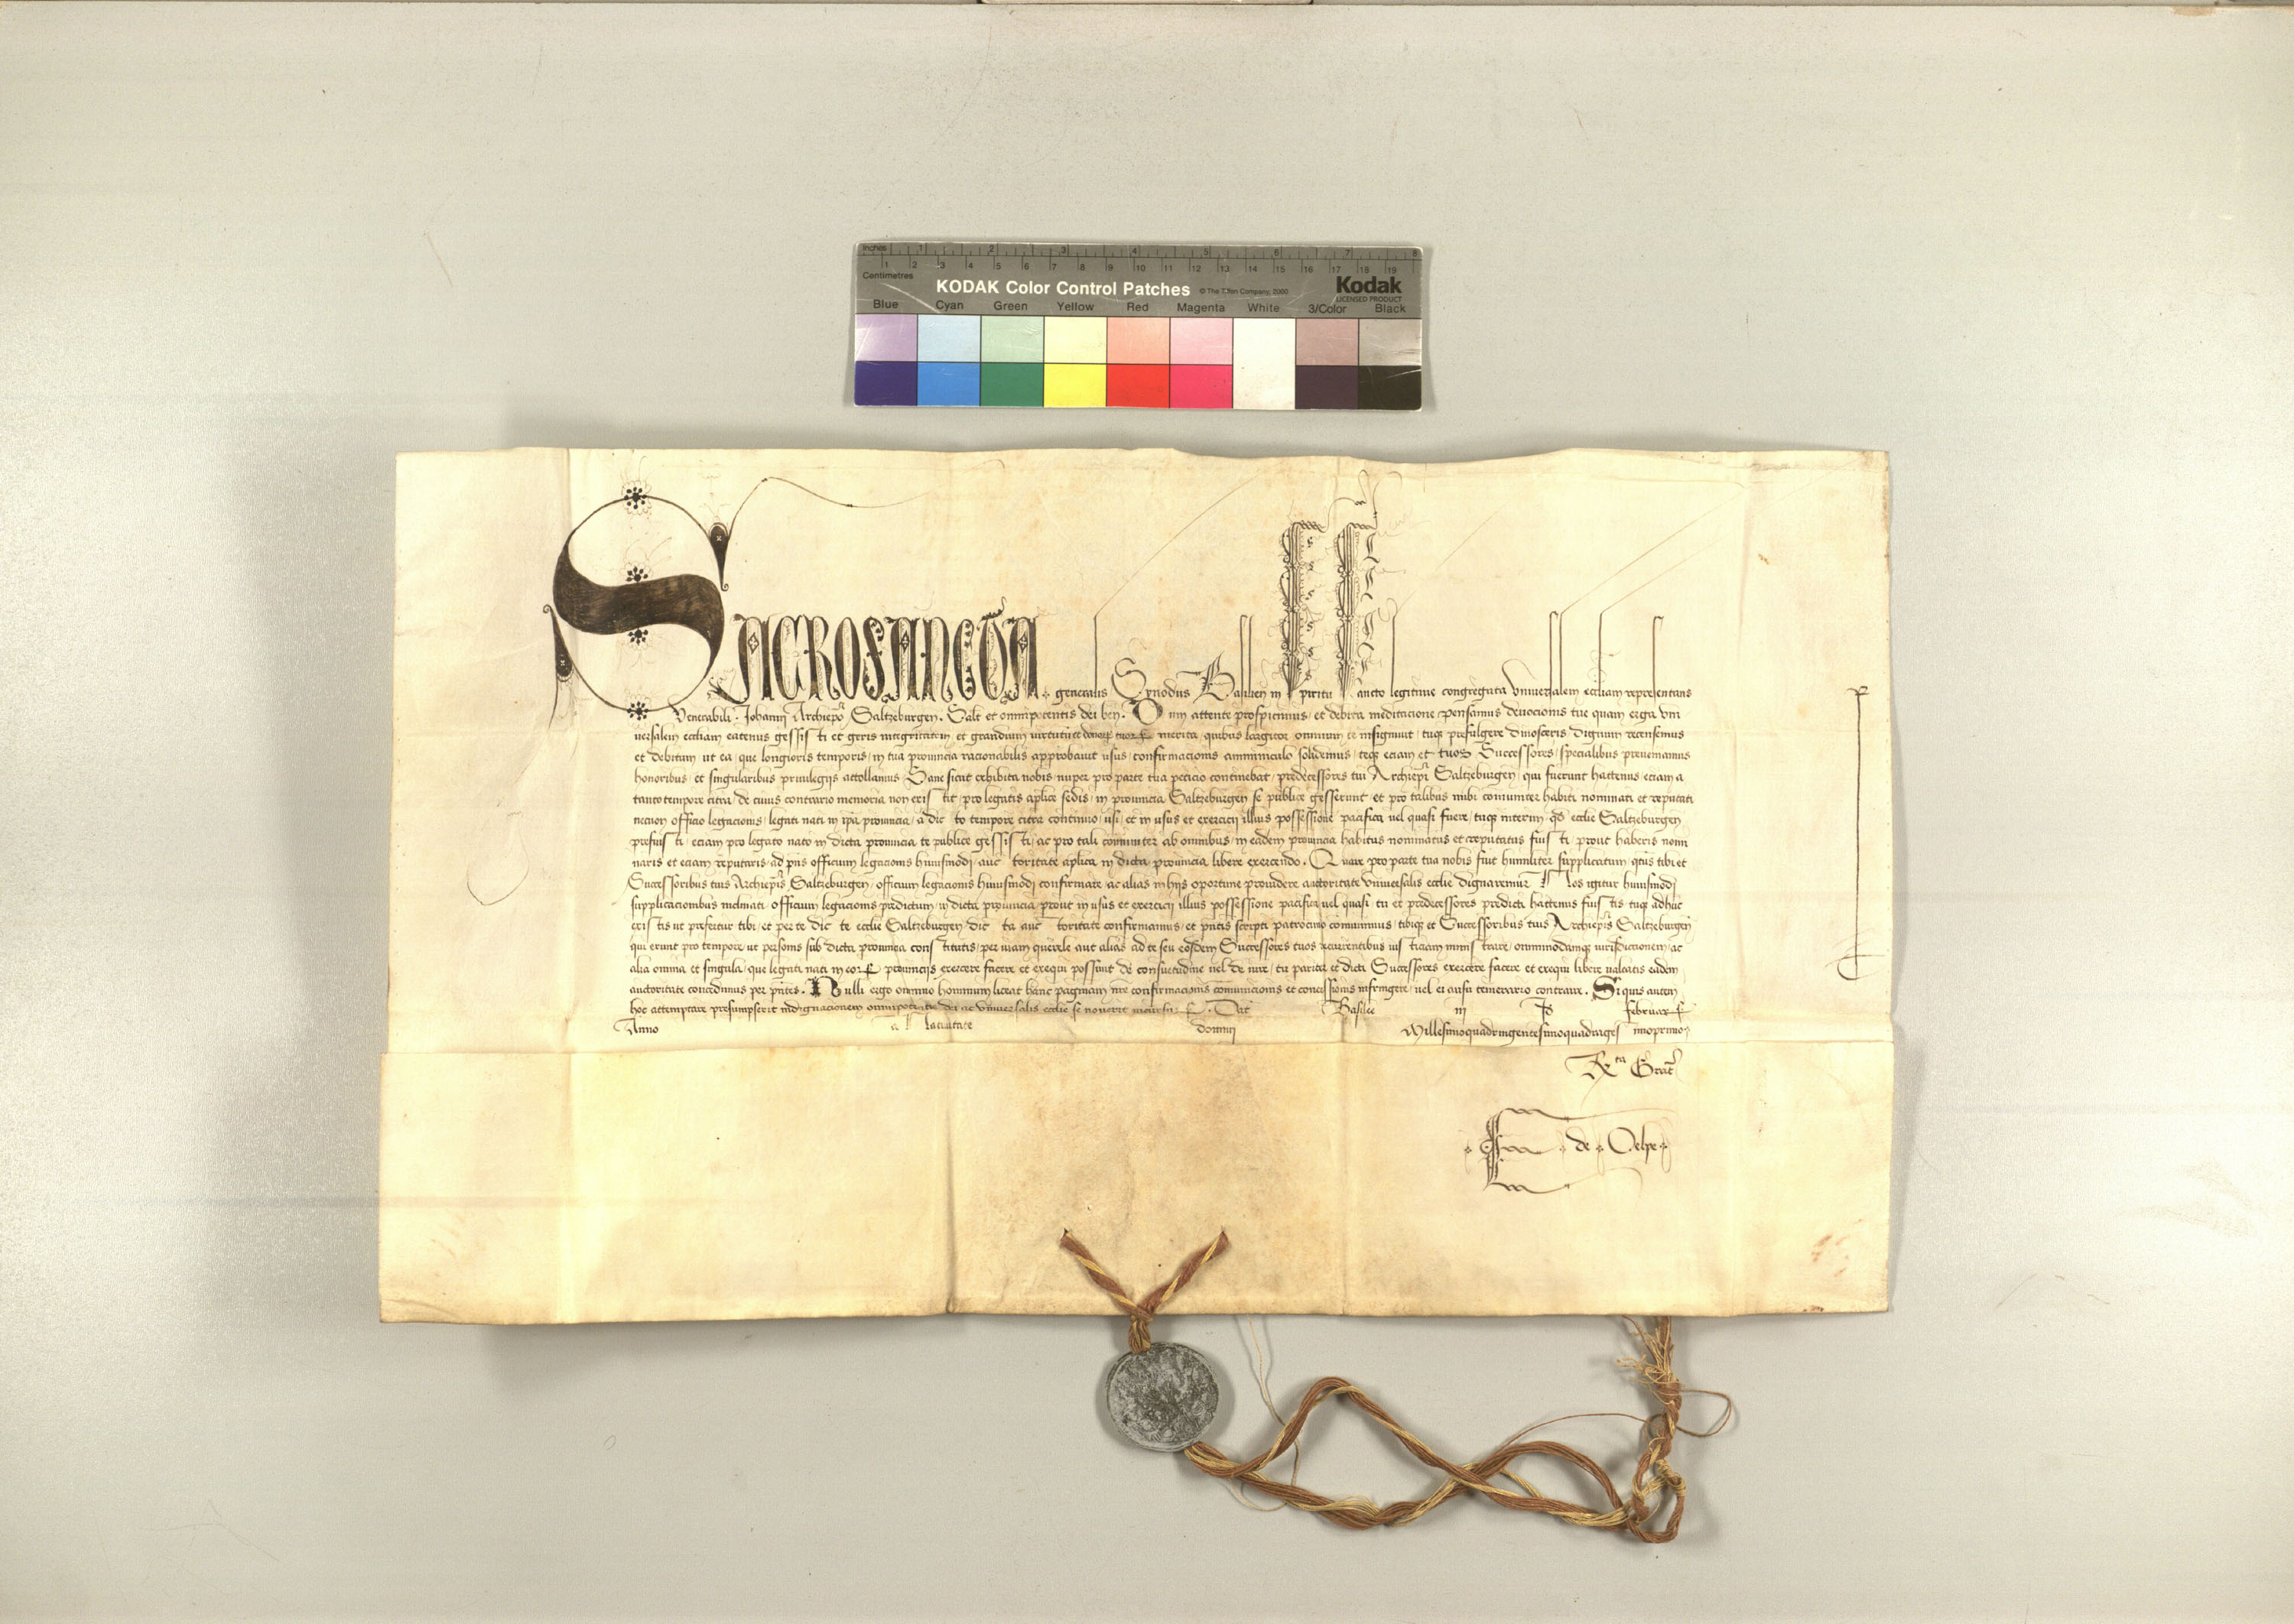 Inches 1 2 3 4 5 6 7 8
Centimetres 1 2 3 4 5 6 7 8 9 10 11 12 13 14 15 16 17 18 19
KODAK Color Control Patches © The Tiffen Company, 2000 Kodak
LICENSED PRODUCT
Blue Cyan Green Yellow Red Magenta White 3/Color Black
SACROSANCTA generalis Synodus Basilien in spiritu sancto legitime congregata vniuersalem eccliam representans
Venerabili Johanni Archiepo Saltzeburgen. Salt et omnipotentis dei ben. Dum attente prospicimus et debita meditacione pensamus deuocionis tue quam erga vni
uersalem eccliam eatenus gessisti et geris integritatem et grandium virtutum merita, quibus largitor omnium te insigniuit, tuque prefulgere dinosceris, dignum recensemus
et debitum ut ea, que longioris temporis in tua prouincia racionabilis approbauit usus, confirmacionis amminiculo solidemus, teque eciam et tuos Successores specialibus preueniamus
honoribus, et singularibus priuilegijs attollamus. Sane sicut exhibita nobis nuper pro parte tua peticio continebat, predecessores tui Archiepi Saltzeburgen, qui fuerunt hactenus, eciam a
tanto tempore citra, de cuius contrario memoria non existit, pro legatis aplice sedis in prouincia Saltzeburgen se publice gesserunt, et pro talibus inibi communiter habiti nominati et reputati
necnon officio legacionis, legati nati in ipa prouincia, a dicto tempore citra continuo usi, et in usus et exercicij illius possessione pacifica uel quasi fuere, tuque interim, qd ecclie Saltzeburgen
prefuisti, eciam pro legato nato in dicta prouincia te publice gessisti, ac pro tali communiter ab omnibus in eadem prouincia habitus nominatus et reputatus fuisti, prout haberis nomi
naris et eciam reputaris, ad pns officium legacionis huiusmodi auctoritate aplica in dicta prouincia libere exercendo. Quare pro parte tua nobis fuit humiliter supplicatum, qtus tibi et
Successoribus tuis Archiepis Saltzeburgen, officium legacionis huiusmodi confirmare, ac alias in hijs oportune prouidere auctoritate vniuersalis ecclie dignaremur. Nos igitur huiusmodi
supplicacionibus inclinati, officium legacionis predictum in dicta prouincia, prout in usus et exercicij illius possessione pacifica uel quasi, tu et predecessores predicti hactenus fuistis, tuque adhuc
existis ut prefertur tibi, et per te dicte ecclie Saltzeburgen, dicta auctoritate confirmamus, et pntis scripti patrocinio communimus, tibique et Successoribus tuis Archiepis Saltzeburgen
qui erunt pro tempore, ut personis sub dicta prouincia constitutis, per uiam querele aut alias ad te seu eosdem Successores tuos recurrentibus iusticiam ministrare, omnimodamque iurisdictionem, ac
alia omnia et singula, que legati nati in eor prouincijs exercere facere et exequi possunt de consuetudine uel de iure, tu pariter et dicti Successores exercere facere et exequi libere ualeatis eadem
auctoritate concedimus per pntes. Nulli ergo omnino hominum liceat hanc paginam nre confirmacionis communicionis et concessionis infringere, uel ei ausu temerario contraire. Si quis autem
hoc attemptare presumpserit indignacionem omnipotentis dei ac vniuersalis ecclie se nouerit incursur. Dat Basilee iij Id Februar
Anno a Natiuitate domini Millesimoquadringentesimoquadragesimoprimo
Rta Grat
de Oelpe